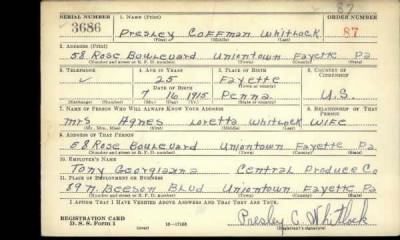 87
SERIAL NUMBER 1. NAME (Print) ORDER NUMBER
3686 Presley Coffman Whitlock 87
(First) (Middle) (Last)
2. ADDRESS (Print)
58 Rose Boulevard Uniontown Fayette Pa.
(Number and street or R. F. D. number) (Town) (County) (State)
3. TELEPHONE 4. AGE IN YEARS 5. PLACE OF BIRTH 6. COUNTRY OF CITIZENSHIP
✓ 25 Fayette
DATE OF BIRTH (Town or county)
7 16 1915 Penna. U.S.
(Exchange) (Number) (Mo.) (Day) (Yr.) (State or country)
7. NAME OF PERSON WHO WILL ALWAYS KNOW YOUR ADDRESS 8. RELATIONSHIP OF THAT PERSON
Mrs Agnes Loretta Whitlock Wife
(Mr., Mrs., Miss) (First) (Middle) (Last)
9. ADDRESS OF THAT PERSON
58 Rose Boulevard Uniontown Fayette Pa.
(Number and street or R. F. D. number) (Town) (County) (State)
10. EMPLOYER'S NAME
Tony Georgianna Central Produce Co
11. PLACE OF EMPLOYMENT OR BUSINESS
89 N. Beeson Blvd Uniontown Fayette Pa
(Number and street or R. F. D. number) (Town) (County) (State)
I AFFIRM THAT I HAVE VERIFIED ABOVE ANSWERS AND THAT THEY ARE TRUE.
REGISTRATION CARD
D. S. S. Form 1 (over) Presley C. Whitlock
(Registrant's signature)